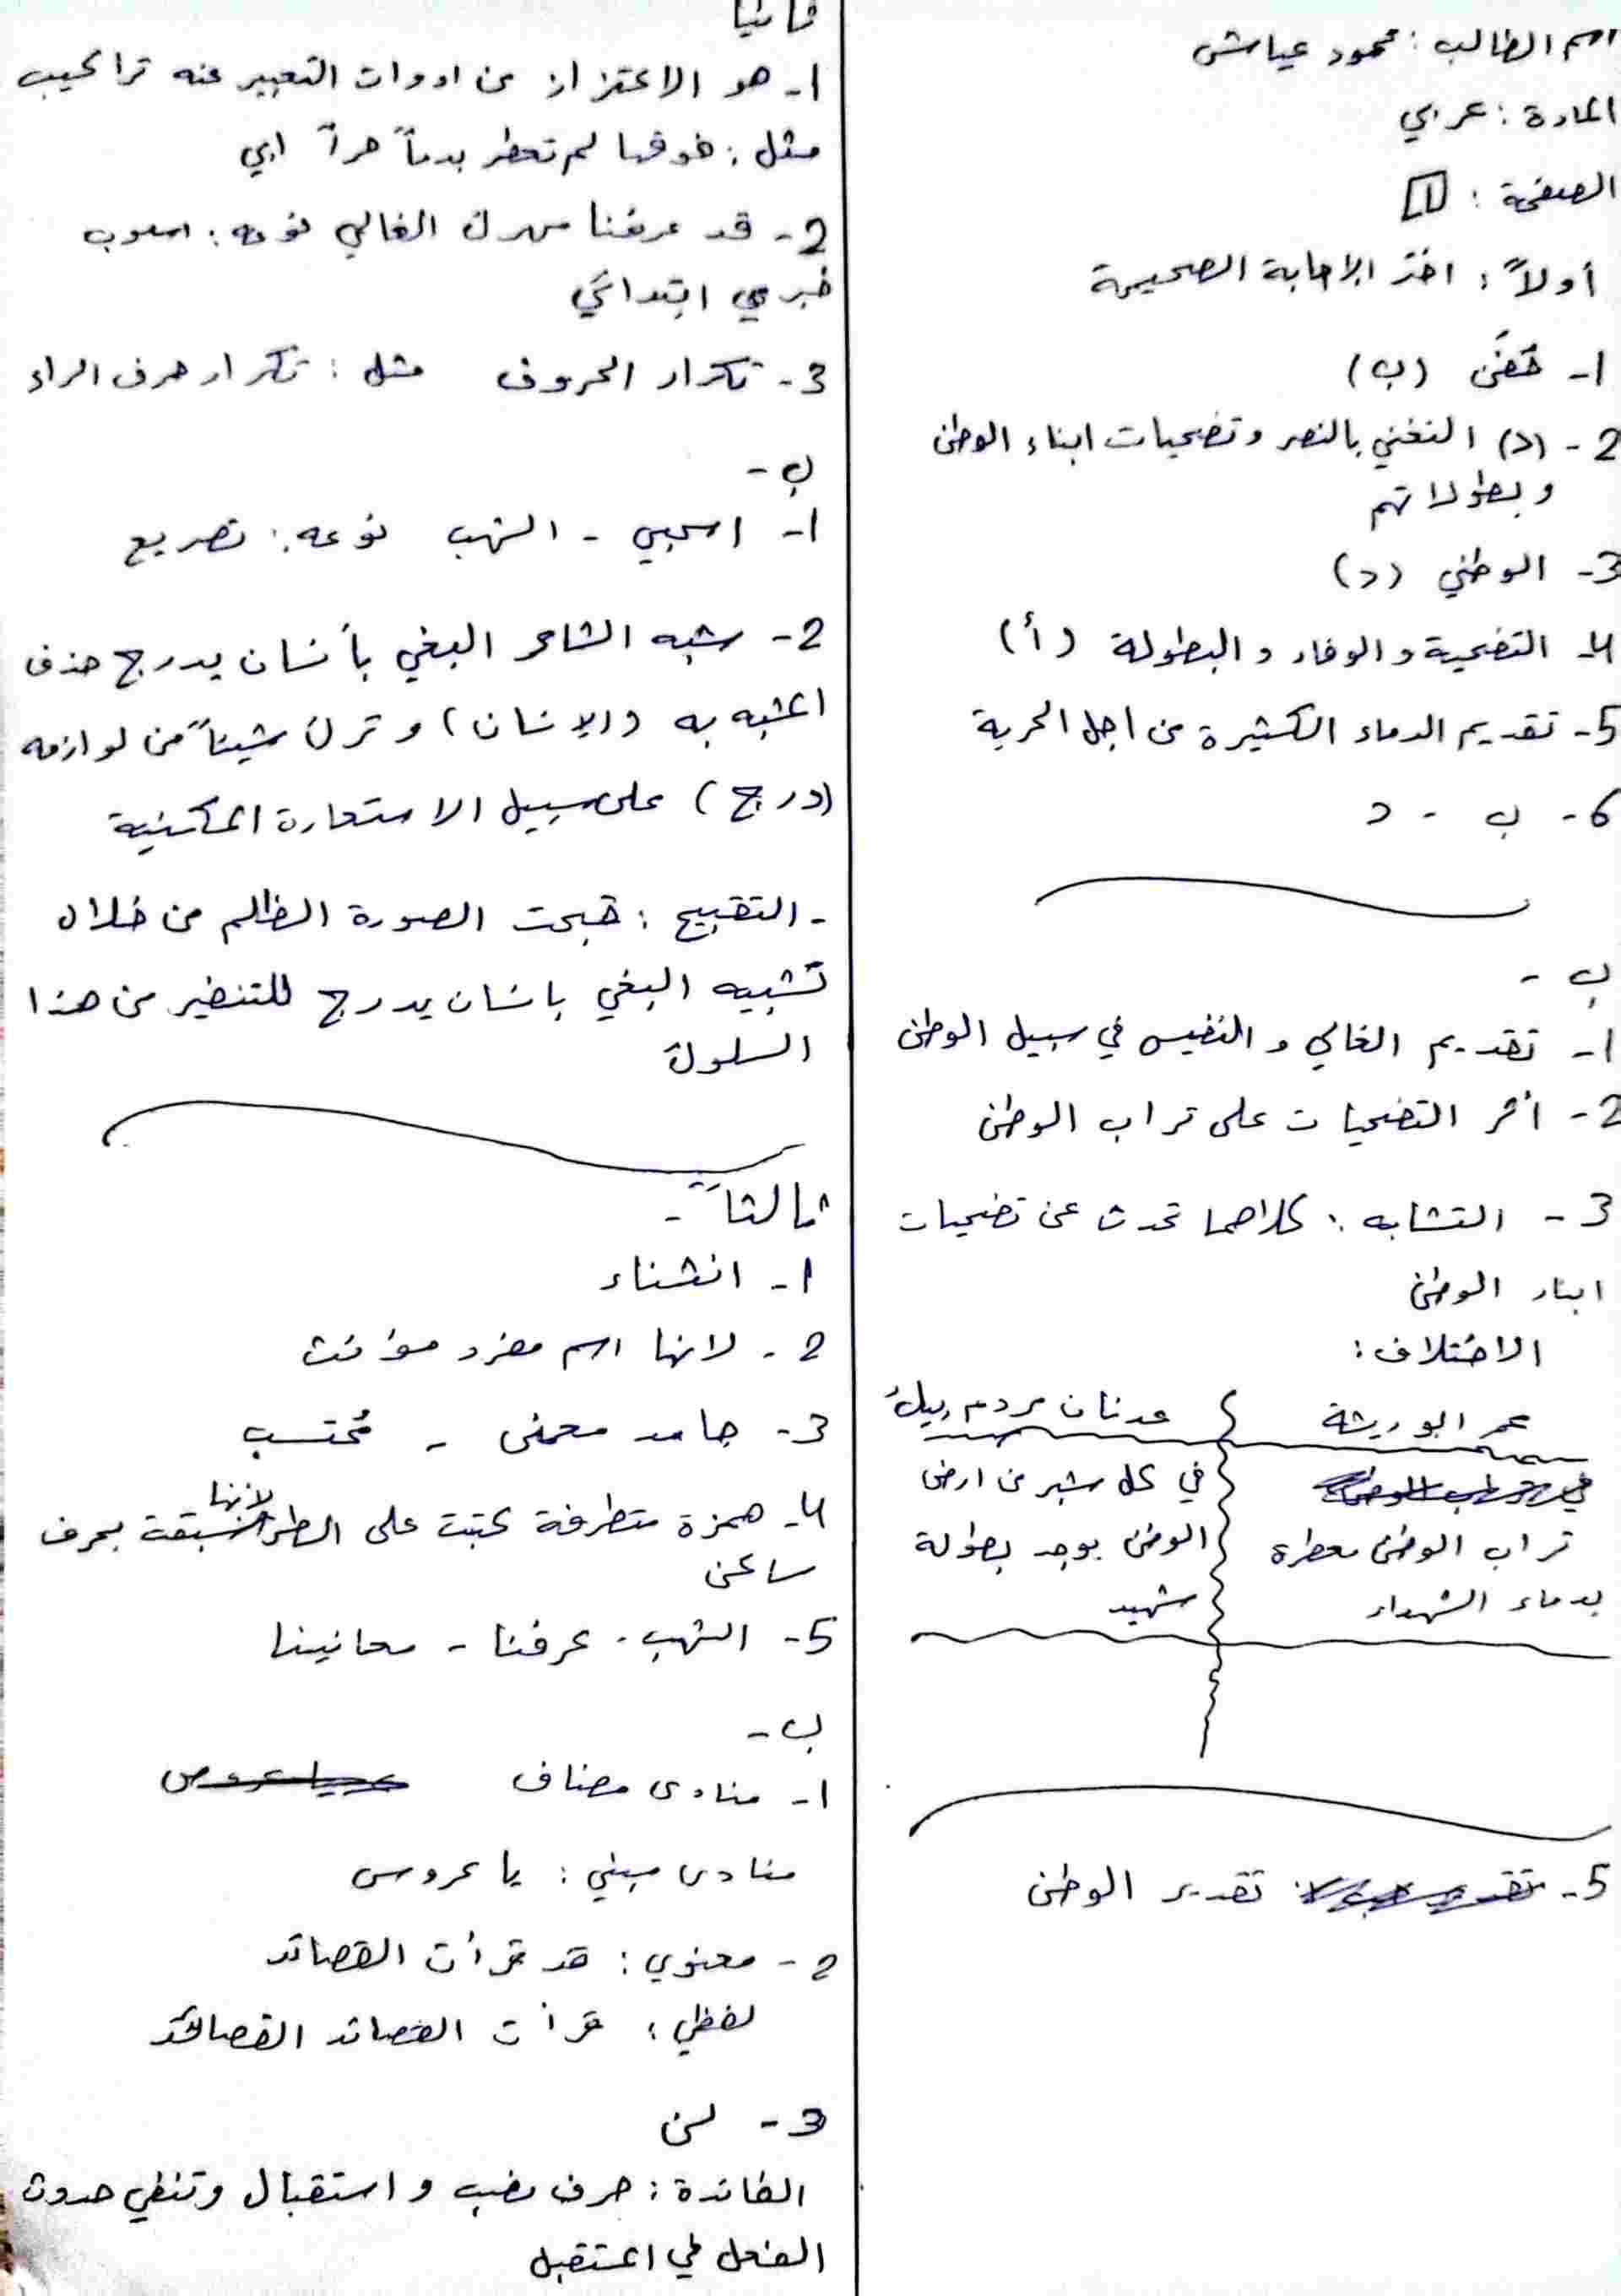 اسم الطالب : محمود عياش
المادة : عربي
الصفحة : 1
أولاً : اختر الاجابة الصحيحة
1- خفض (ب)
2- (د) التغني بالنصر وتضحيات ابناء الوطن
وبطولاتهم
3- الوطني (د)
4- التضحية والوفاء والبطولة (أ)
5- تقديم الدماء الكثيرة من اجل الحرية
6- ب - د
ب -
1- تقديم الغالي والنفيس في سبيل الوطن
2- أثر التضحيات على تراب الوطن
3- التشابه : كلاهما تحدث عن تضحيات
ابناء الوطن
الاختلاف :
عمر ابو ريشة
تراب الوطن معطرة
بدماء الشهداء
عدنان مردم بيك
في كل شبر من ارض
الوطن يوجد بطولة
شهيد
5- تقدير الوطن
ثانيا
1- هو الاعتزاز من ادوات التعبير عنه تراكيب
مثل : فوقها لم تعطر بدماً حراً ابي
2- قد عرفنا مهرك الغالي نوعه : اسلوب
خبري ابتدائي
3- تكرار الحروف مثل : تكرار حرف الراء
ب -
1- اسحبي - الشهب نوعه : تصريع
2- شبه الشاعر البغي بأنسان يدرج حذف
المشبه به (الإنسان) وترك شيئاً من لوازمه
(درج) على سبيل الاستعارة المكنية
- التقبيح : قبحت الصورة الظالم من خلال
تشبيه البغي بانسان يدرج للتنفير من هذا
السلوك
ثالثاً -
1- انشناء
2- لانها اسم مفرد مؤنث
3- جامد معنى - مُحتسب
4- همزة متطرفة كتبت على السطر لانها سبقت بحرف
ساكن
5- الشهب - عرفنا - معانينا
ب -
1- منادى مضاف
منادى مبني : يا عروس
2- معنوي : قد قرأت القصائد
لفظي : قرأت القصائد القصائد
3- لن
الفائدة : حرف نصب واستقبال وتنفي حدوث
الفعل في المستقبل